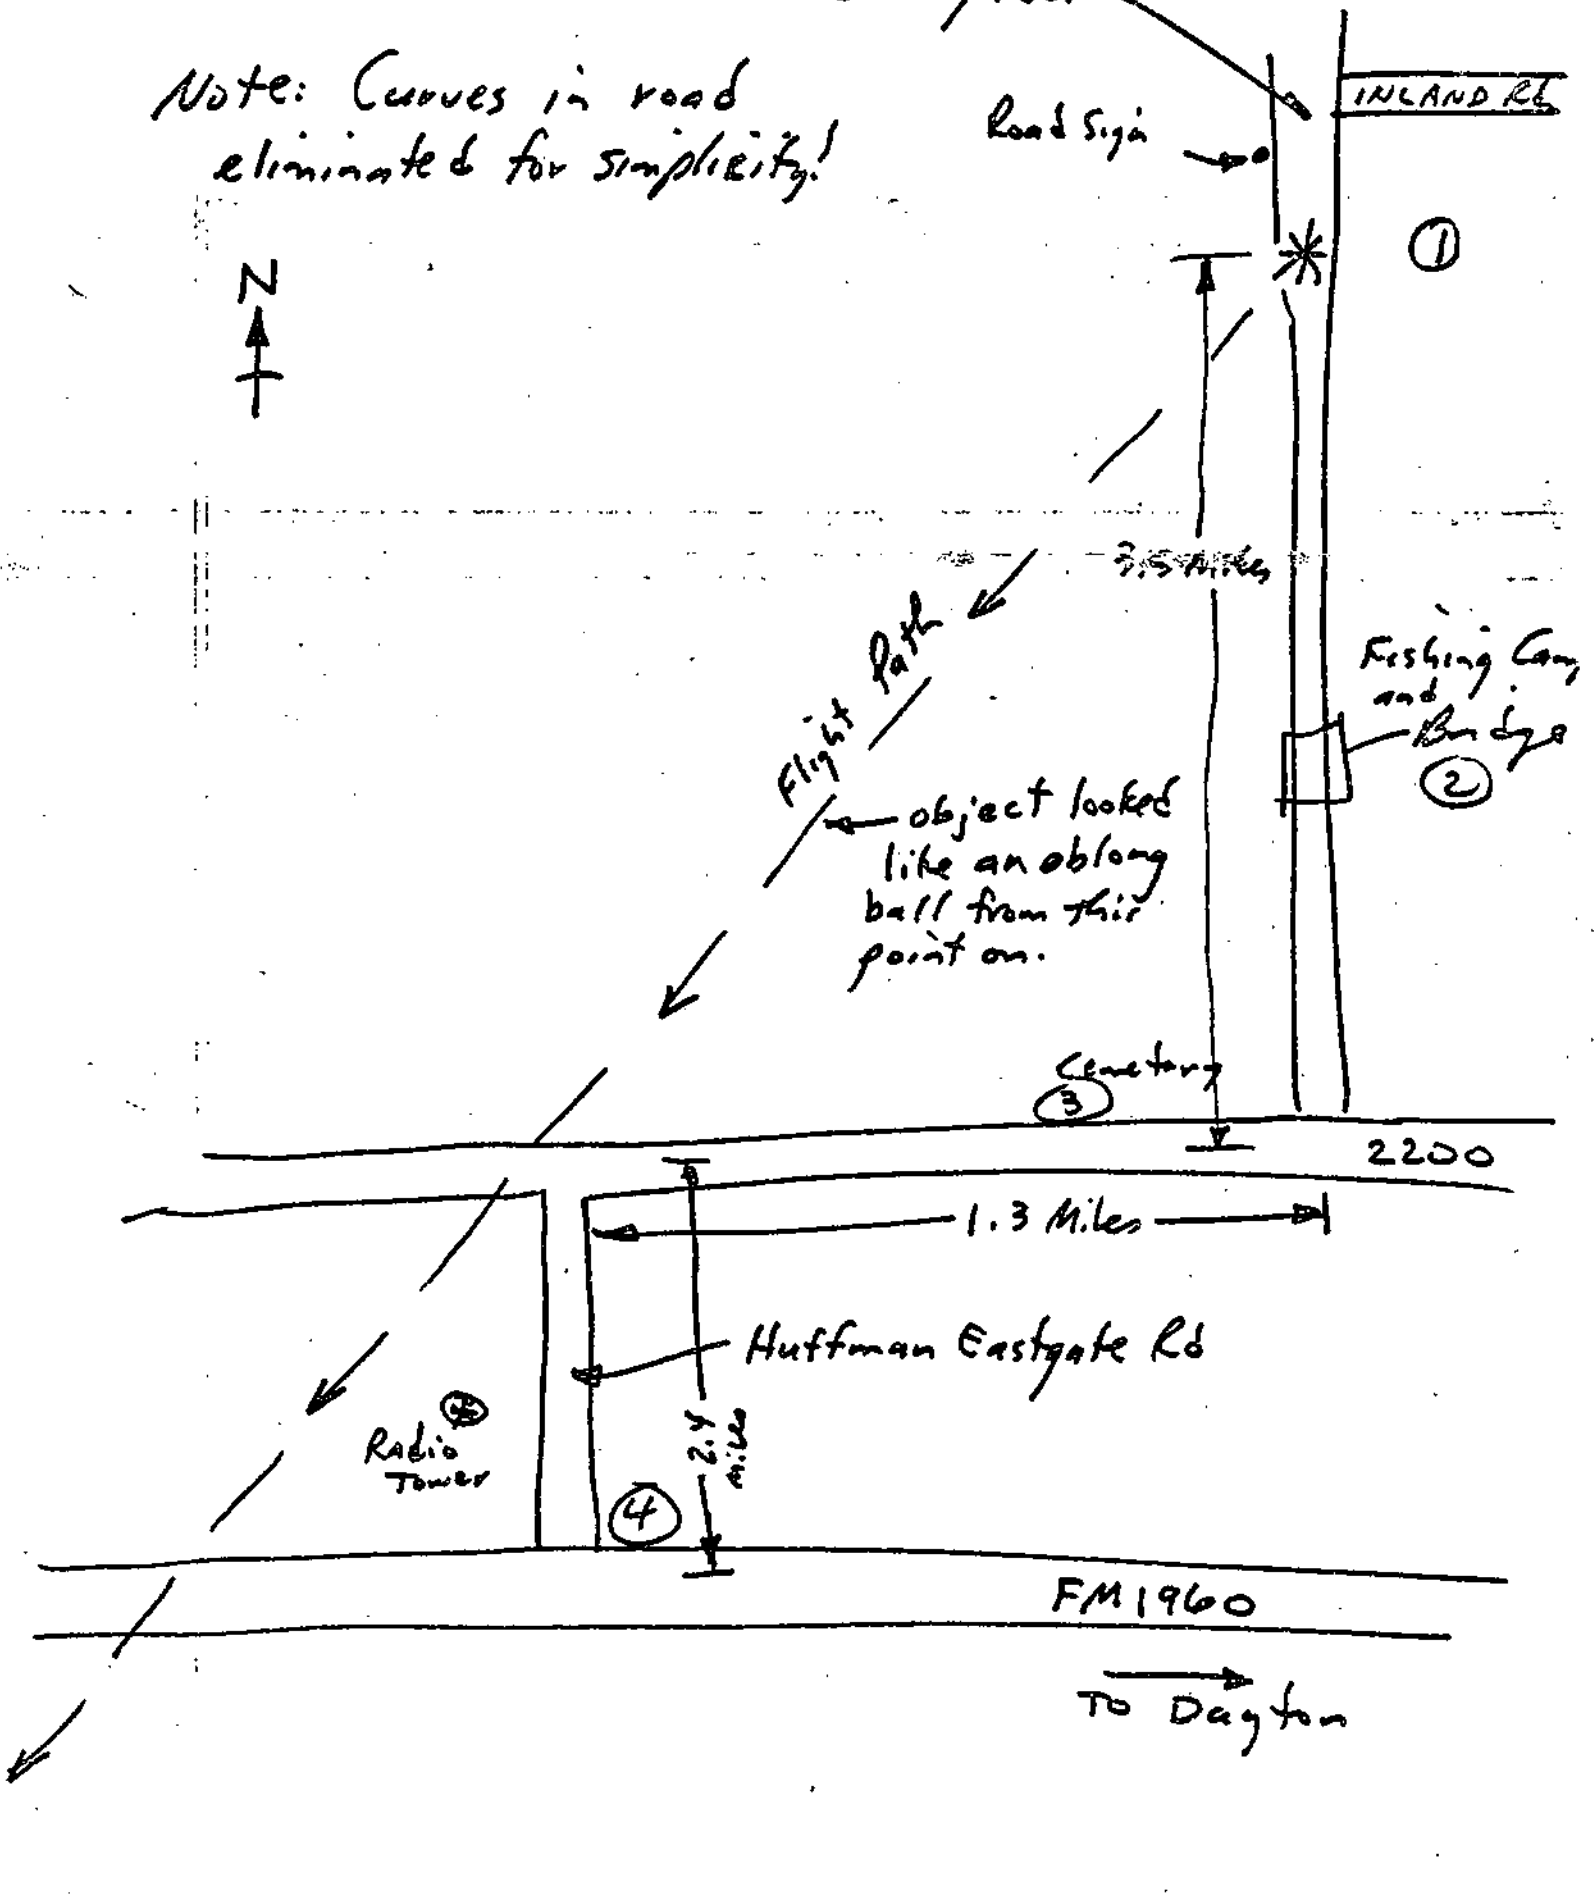 Note: Curves in road
eliminated for simplicity!
INLAND Rd
Road Sign
N
①
3.5 Miles
Flight Path
Fishing
and
Bridge
②
object looked
like an oblong
ball from this
point on.
Cemetary
③
2200
1.3 Miles
Huffman Eastgate Rd
2.4
miles
Radio
Tower
④
FM 1960
TO Dayton